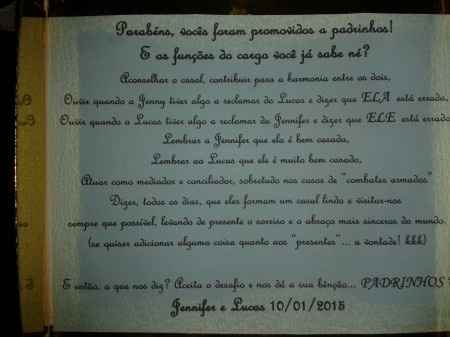 Parabéns, vocês foram promovidos a padrinhos!
E as funções do cargo você já sabe né?
Aconselhar o casal, contribuir para a harmonia entre os dois,
Ouvir quando a Jenny tiver algo a reclamar do Lucas e dizer que ELA está errada,
Ouvir quando o Lucas tiver algo a reclamar da Jennifer e dizer que ELE está errado
Lembrar a Jennifer que ela é bem casada,
Lembrar ao Lucas que ele é muito bem casado,
Atuar como mediador e conciliador, sobretudo nos casos de "combates armados"
Dizer, todos os dias, que eles formam um casal lindo e visitar-nos
sempre que possível, levando de presente o sorriso e o abraço mais sinceros do mundo.
(se quiser adicionar alguma coisa quanto aos "presentes"... a vontade! kkk)
E então, o que nos diz? Aceita o desafio e nos dê a sua bênção... PADRINHOS
Jennifer e Lucas 10/01/2015